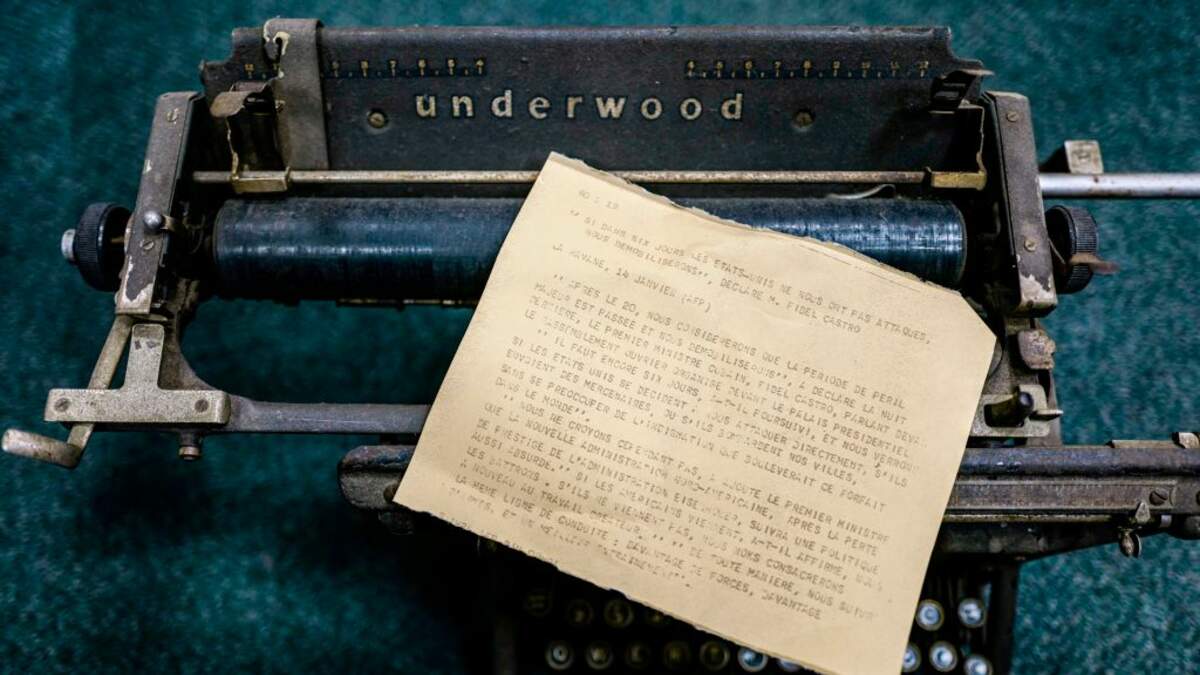 12 9 8 7 6 5 4
4 5 6 7 8 9 10 11 12
underwood
AO : 19
" SI DANS SIX JOURS LES ETATS-UNIS NE NOUS ONT PAS ATTAQUES,
NOUS DEMOBILISERONS", DECLARE M. FIDEL CASTRO
LA HAVANE, 14 JANVIER (AFP)
" APRES LE 20, NOUS CONSIDERERONS QUE LA PERIODE DE PERIL
MAJEUR EST PASSEE ET NOUS DEMOBILISERONS", A DECLARE LA NUIT
DERNIERE, LE PREMIER MINISTRE CUBAIN, FIDEL CASTRO, PARLANT DEVA
LE RASSEMBLEMENT OUVRIER ORGANISE DEVANT LE PALAIS PRESIDENTIEL.
" IL FAUT ENCORE SIX JOURS, A-T-IL POURSUIVI, ET NOUS VERRONS
SI LES ETATS UNIS SE DECIDENT A NOUS ATTAQUER DIRECTEMENT, S'ILS
ENVOIENT DES MERCENAIRES, OU S'ILS BOMBARDENT NOS VILLES,
SANS SE PREOCCUPER DE L'INDIGNATION QUE SOULEVERAIT CE FORFAIT
DANS LE MONDE".
" NOUS NE CROYONS CEPENDANT PAS, A AJOUTE LE PREMIER MINISTRE
QUE LA NOUVELLE ADMINISTRATION NORD-AMERICAINE, APRES LA PERTE
DE PRESTIGE DE L'ADMINISTRATION EISENHOWER, SUIVRA UNE POLITIQUE
AUSSI ABSURDE." SI LES AMERICAINS VIENNENT, A-T-IL AFFIRME, NOUS
LES BATTRONS. S'ILS NE VIENNENT PAS, NOUS NOUS CONSACRERONS
A NOUVEAU AU TRAVAIL CREATEUR." " DE TOUTE MANIERE, NOUS SUIVR
LA MEME LIGNE DE CONDUITE : DAVANTAGE DE FORCES, DAVANTAGE
D'ARMES, ET UN MEILLEUR ENTRAINEMENT".